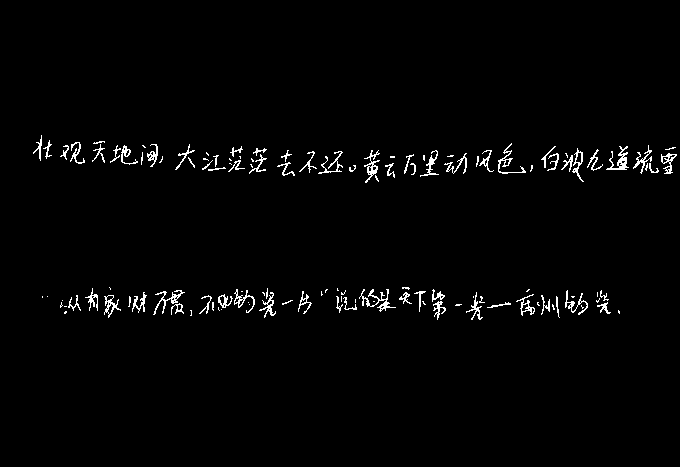 壮观天地间,大江茫茫去不还。黄云万里动风色,白波九道流雪
纵有家财万贯,不如钧瓷一片"说的是天下第一瓷一禹州钧瓷.